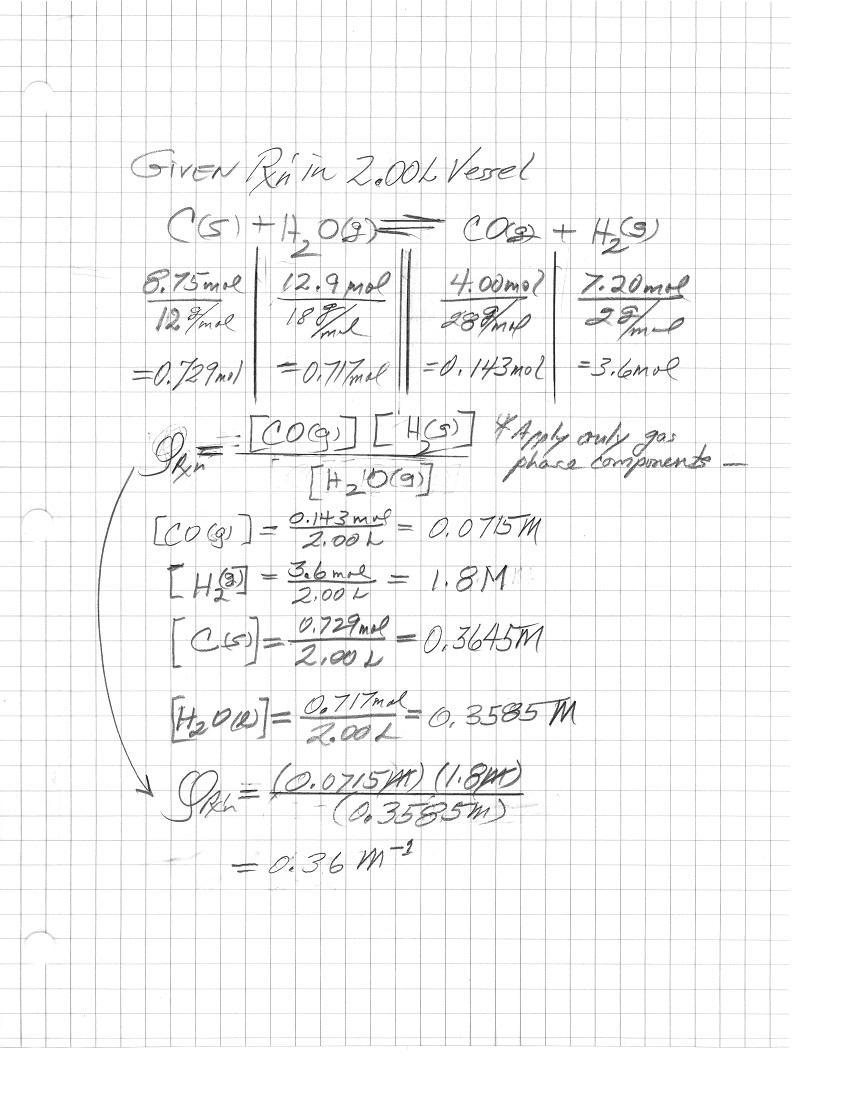 GIVEN Rxn in 2.00L Vessel
C(s) + H₂O(g) ⇌ CO(g) + H₂(g)
8.75mol/12 g/mol | 12.9mol/18 g/mol || 4.00mol/28 g/mol | 7.20mol/2 g/mol
=0.729mol | =0.717mol || =0.143mol | =3.6mol
Q Rxn = [CO(g)][H₂(g)]/[H₂O(g)] *Apply only gas
phase components —
[CO(g)] = 0.143mol/2.00L = 0.0715M
[H₂(g)] = 3.6mol/2.00L = 1.8M
[C(s)] = 0.729mol/2.00L = 0.3645M
[H₂O(g)] = 0.717mol/2.00L = 0.3585M
Q Rxn = (0.0715M)(1.8M)/(0.3585M)
= 0.36 M⁻¹